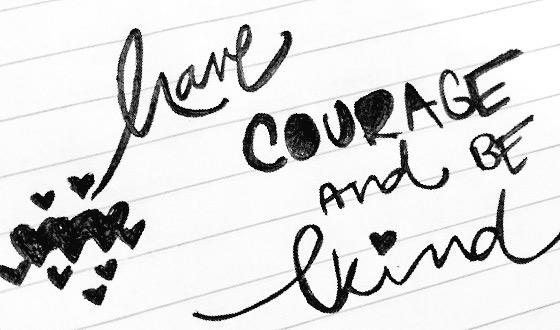 have
COURAGE
And BE
kind